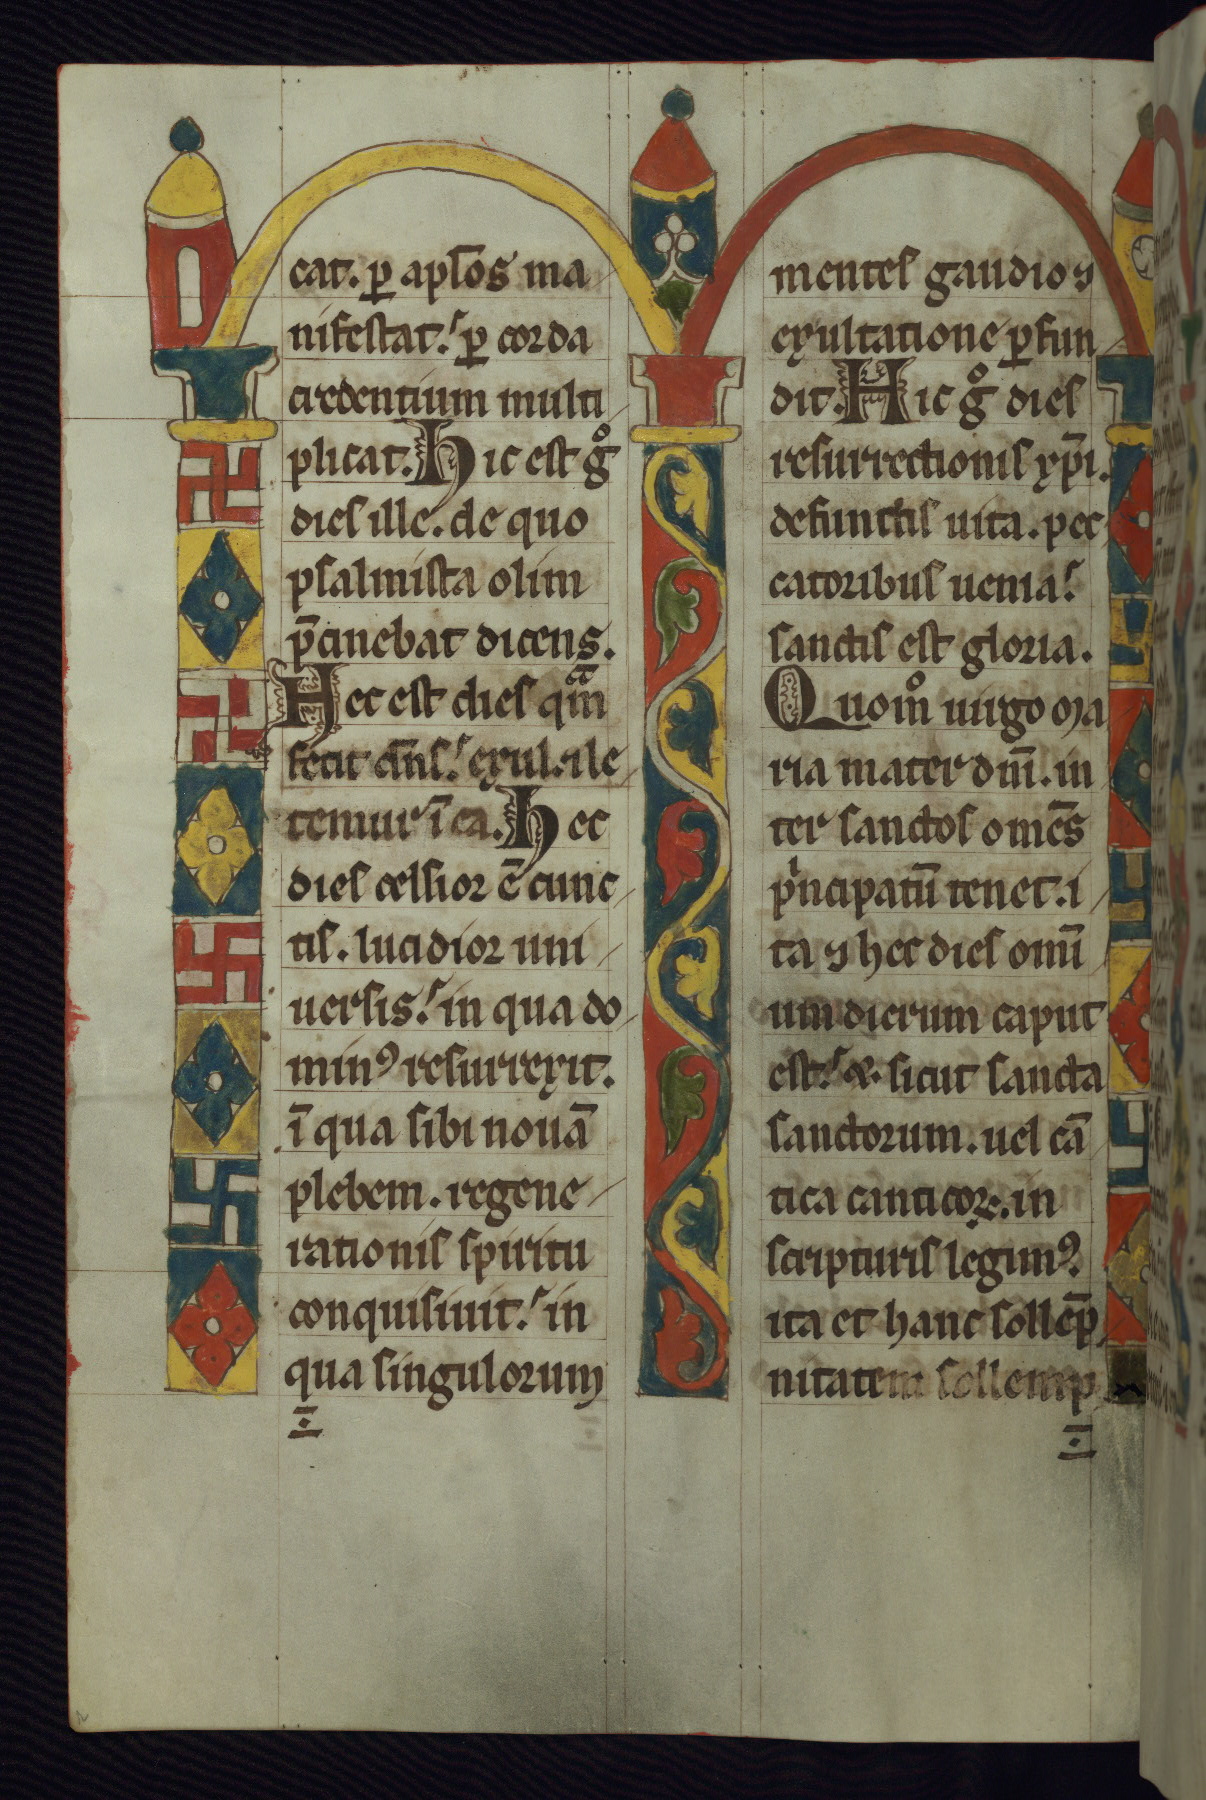 cat. ꝑ apl̄os ma
nifestat. ꝑ corda
credentium multi
plicat. Hic est gͦ
dies ille. de quo
psalmista olim
p̄cinebat dicens.
Hec est dies qͣm
fecit dn̄s. exul. ⁊ le
temur ī ea. Hec
dies celsior ē cunc
tis. lucidior uni
uersis. in qua do
minꝰ resurrexit.
ī qua sibi nouā
plebem. regene
rationis spiritu
conquisiuit. in
qua singulorum
mentes gaudio ⁊
exultatione ꝑfun
dit. Hic gͦ dies
resurrectionis xp̄i.
defunctis uita. pec
catoribus uenia.
sanctis est gloria.
Quom̊ uirgo Ma
ria mater dn̄i. in
ter sanctos omēs
pͥncipatū tenet. i
ta ⁊ hec dies omī
um dierum caput
est. &. sicut sancta
sanctorum. uel cā
tica canticoꝝ. in
scripturis legimꝰ.
ita et hanc sollēp
nitatem sollemp